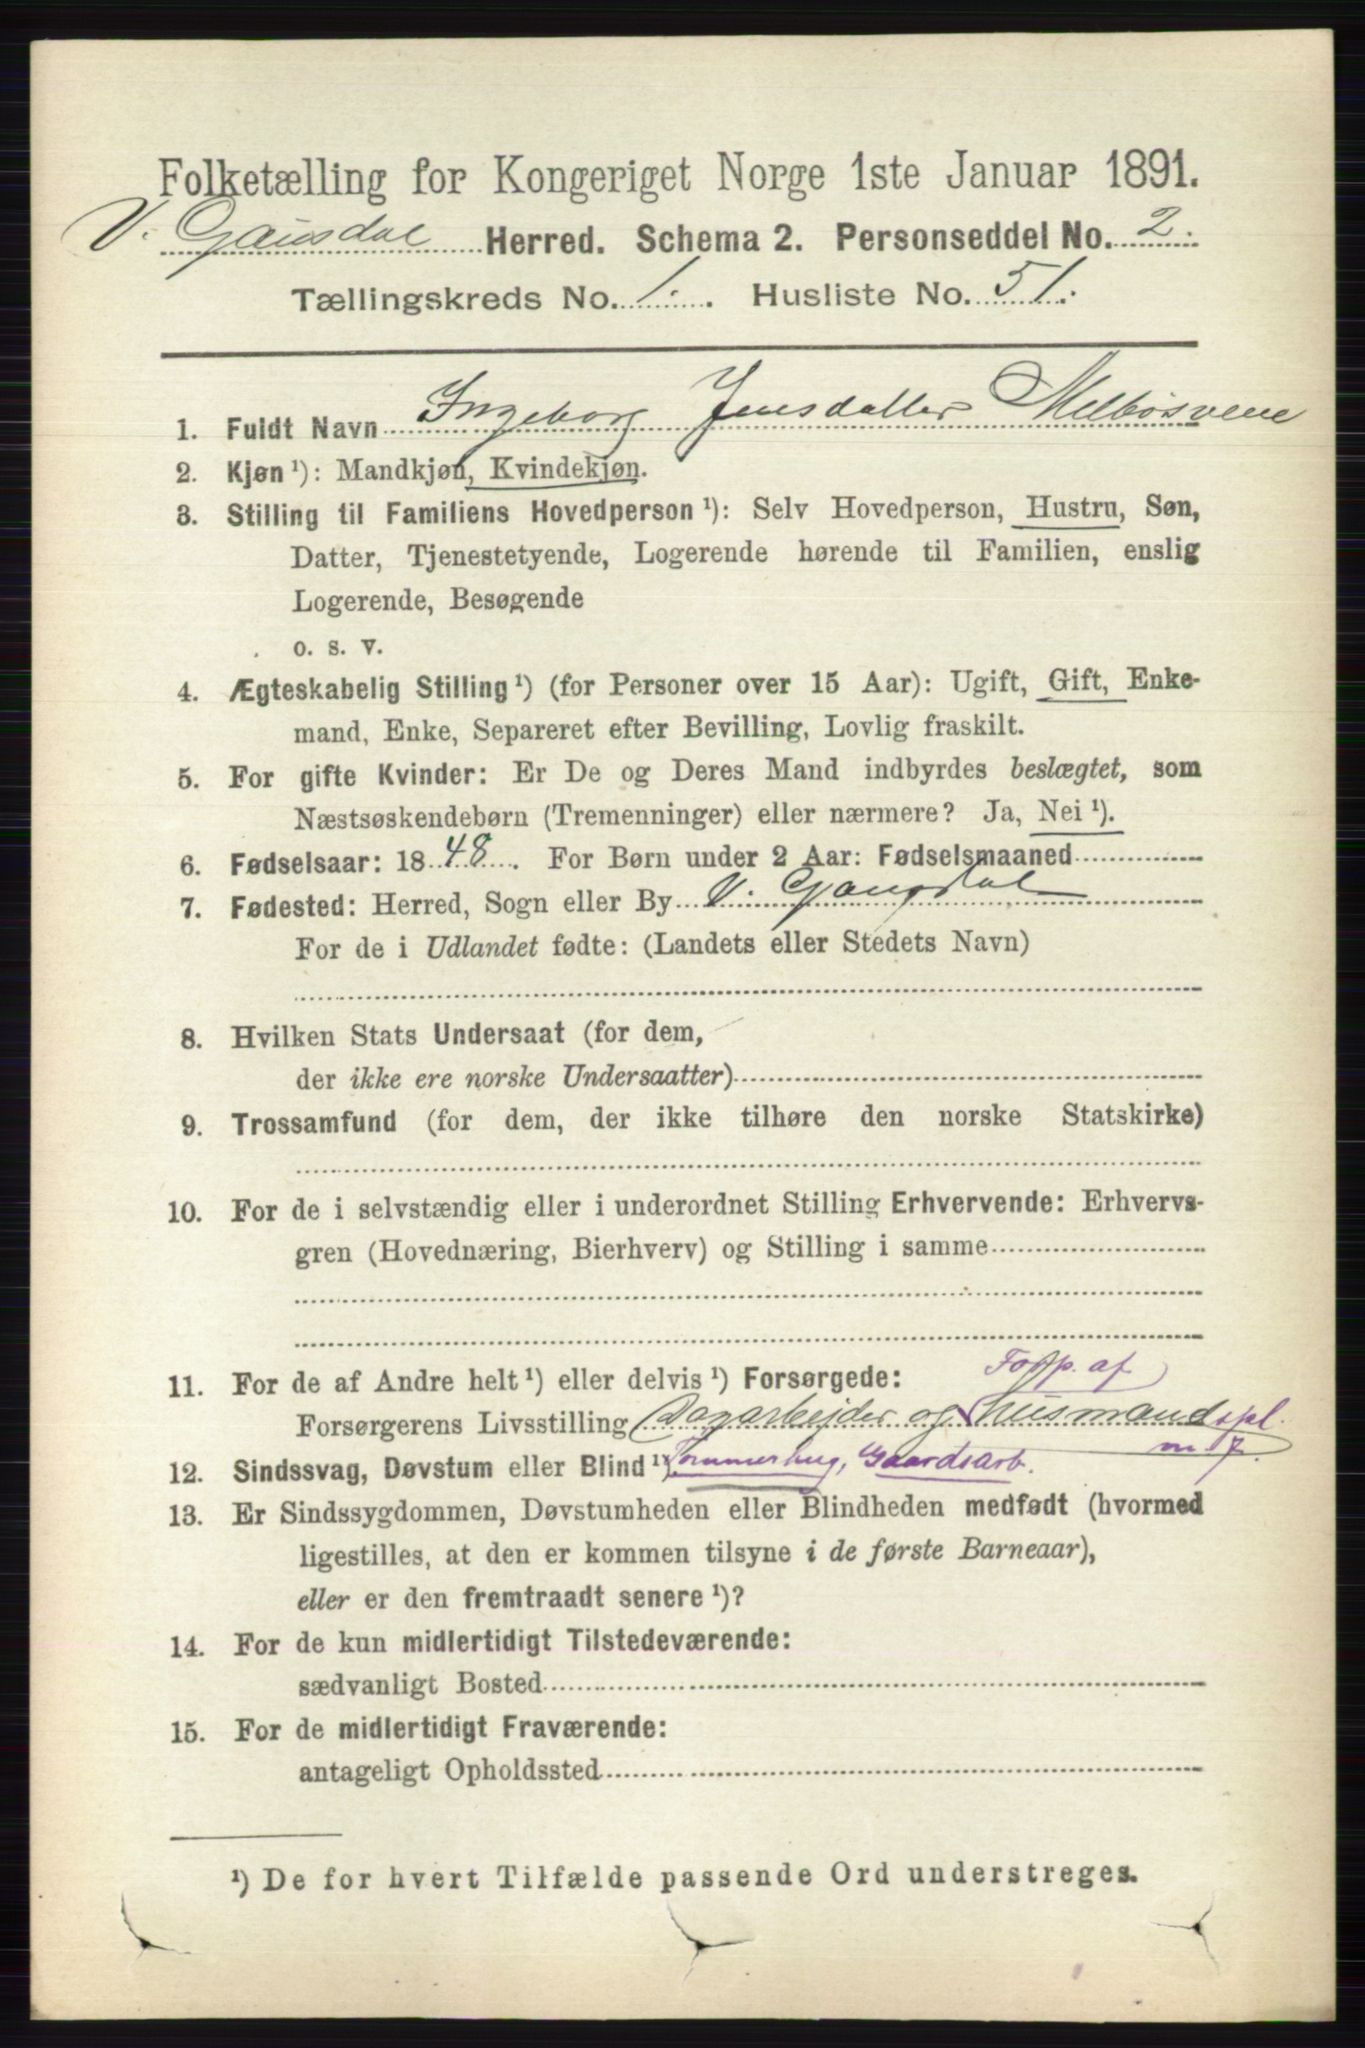 Folketælling for Kongeriget Norge 1ste Januar 1891.
V. Gausdal Herred. Schema 2. Personseddel No. 2.
Tællingskreds No. 1. Husliste No. 51.
1. Fuldt Navn Ingeborg Jensdatter Melbøsvene
2. Kjøn ¹): Mandkjøn, Kvindekjøn.
3. Stilling til Familiens Hovedperson ¹): Selv Hovedperson, Hustru, Søn,
Datter, Tjenestetyende, Logerende hørende til Familien, enslig
Logerende, Besøgende
o. s. v.
4. Ægteskabelig Stilling ¹) (for Personer over 15 Aar): Ugift, Gift, Enke-
mand, Enke, Separeret efter Bevilling, Lovlig fraskilt.
5. For gifte Kvinder: Er De og Deres Mand indbyrdes beslægtet, som
Næstsøskendebørn (Tremenninger) eller nærmere? Ja, Nei ¹).
6. Fødselsaar: 1848. For Børn under 2 Aar: Fødselsmaaned
7. Fødested: Herred, Sogn eller By V. Gausdal
For de i Udlandet fødte: (Landets eller Stedets Navn)
8. Hvilken Stats Undersaat (for dem,
der ikke ere norske Undersaatter)
9. Trossamfund (for dem, der ikke tilhøre den norske Statskirke)
10. For de i selvstændig eller i underordnet Stilling Erhvervende: Erhvervs-
gren (Hovednæring, Bierhverv) og Stilling i samme
11. For de af Andre helt ¹) eller delvis ¹) Forsørgede:
Forsørgerens Livsstilling Dagarbejder og Husmand
12. Sindssvag, Døvstum eller Blind ¹) Tømmerhug, Gaardsarb.
13. Er Sindssygdommen, Døvstumheden eller Blindheden medfødt (hvormed
ligestilles, at den er kommen tilsyne i de første Barneaar),
eller er den fremtraadt senere ¹)?
14. For de kun midlertidigt Tilstedeværende:
sædvanligt Bosted
15. For de midlertidigt Fraværende:
antageligt Opholdssted
¹) De for hvert Tilfælde passende Ord understreges.